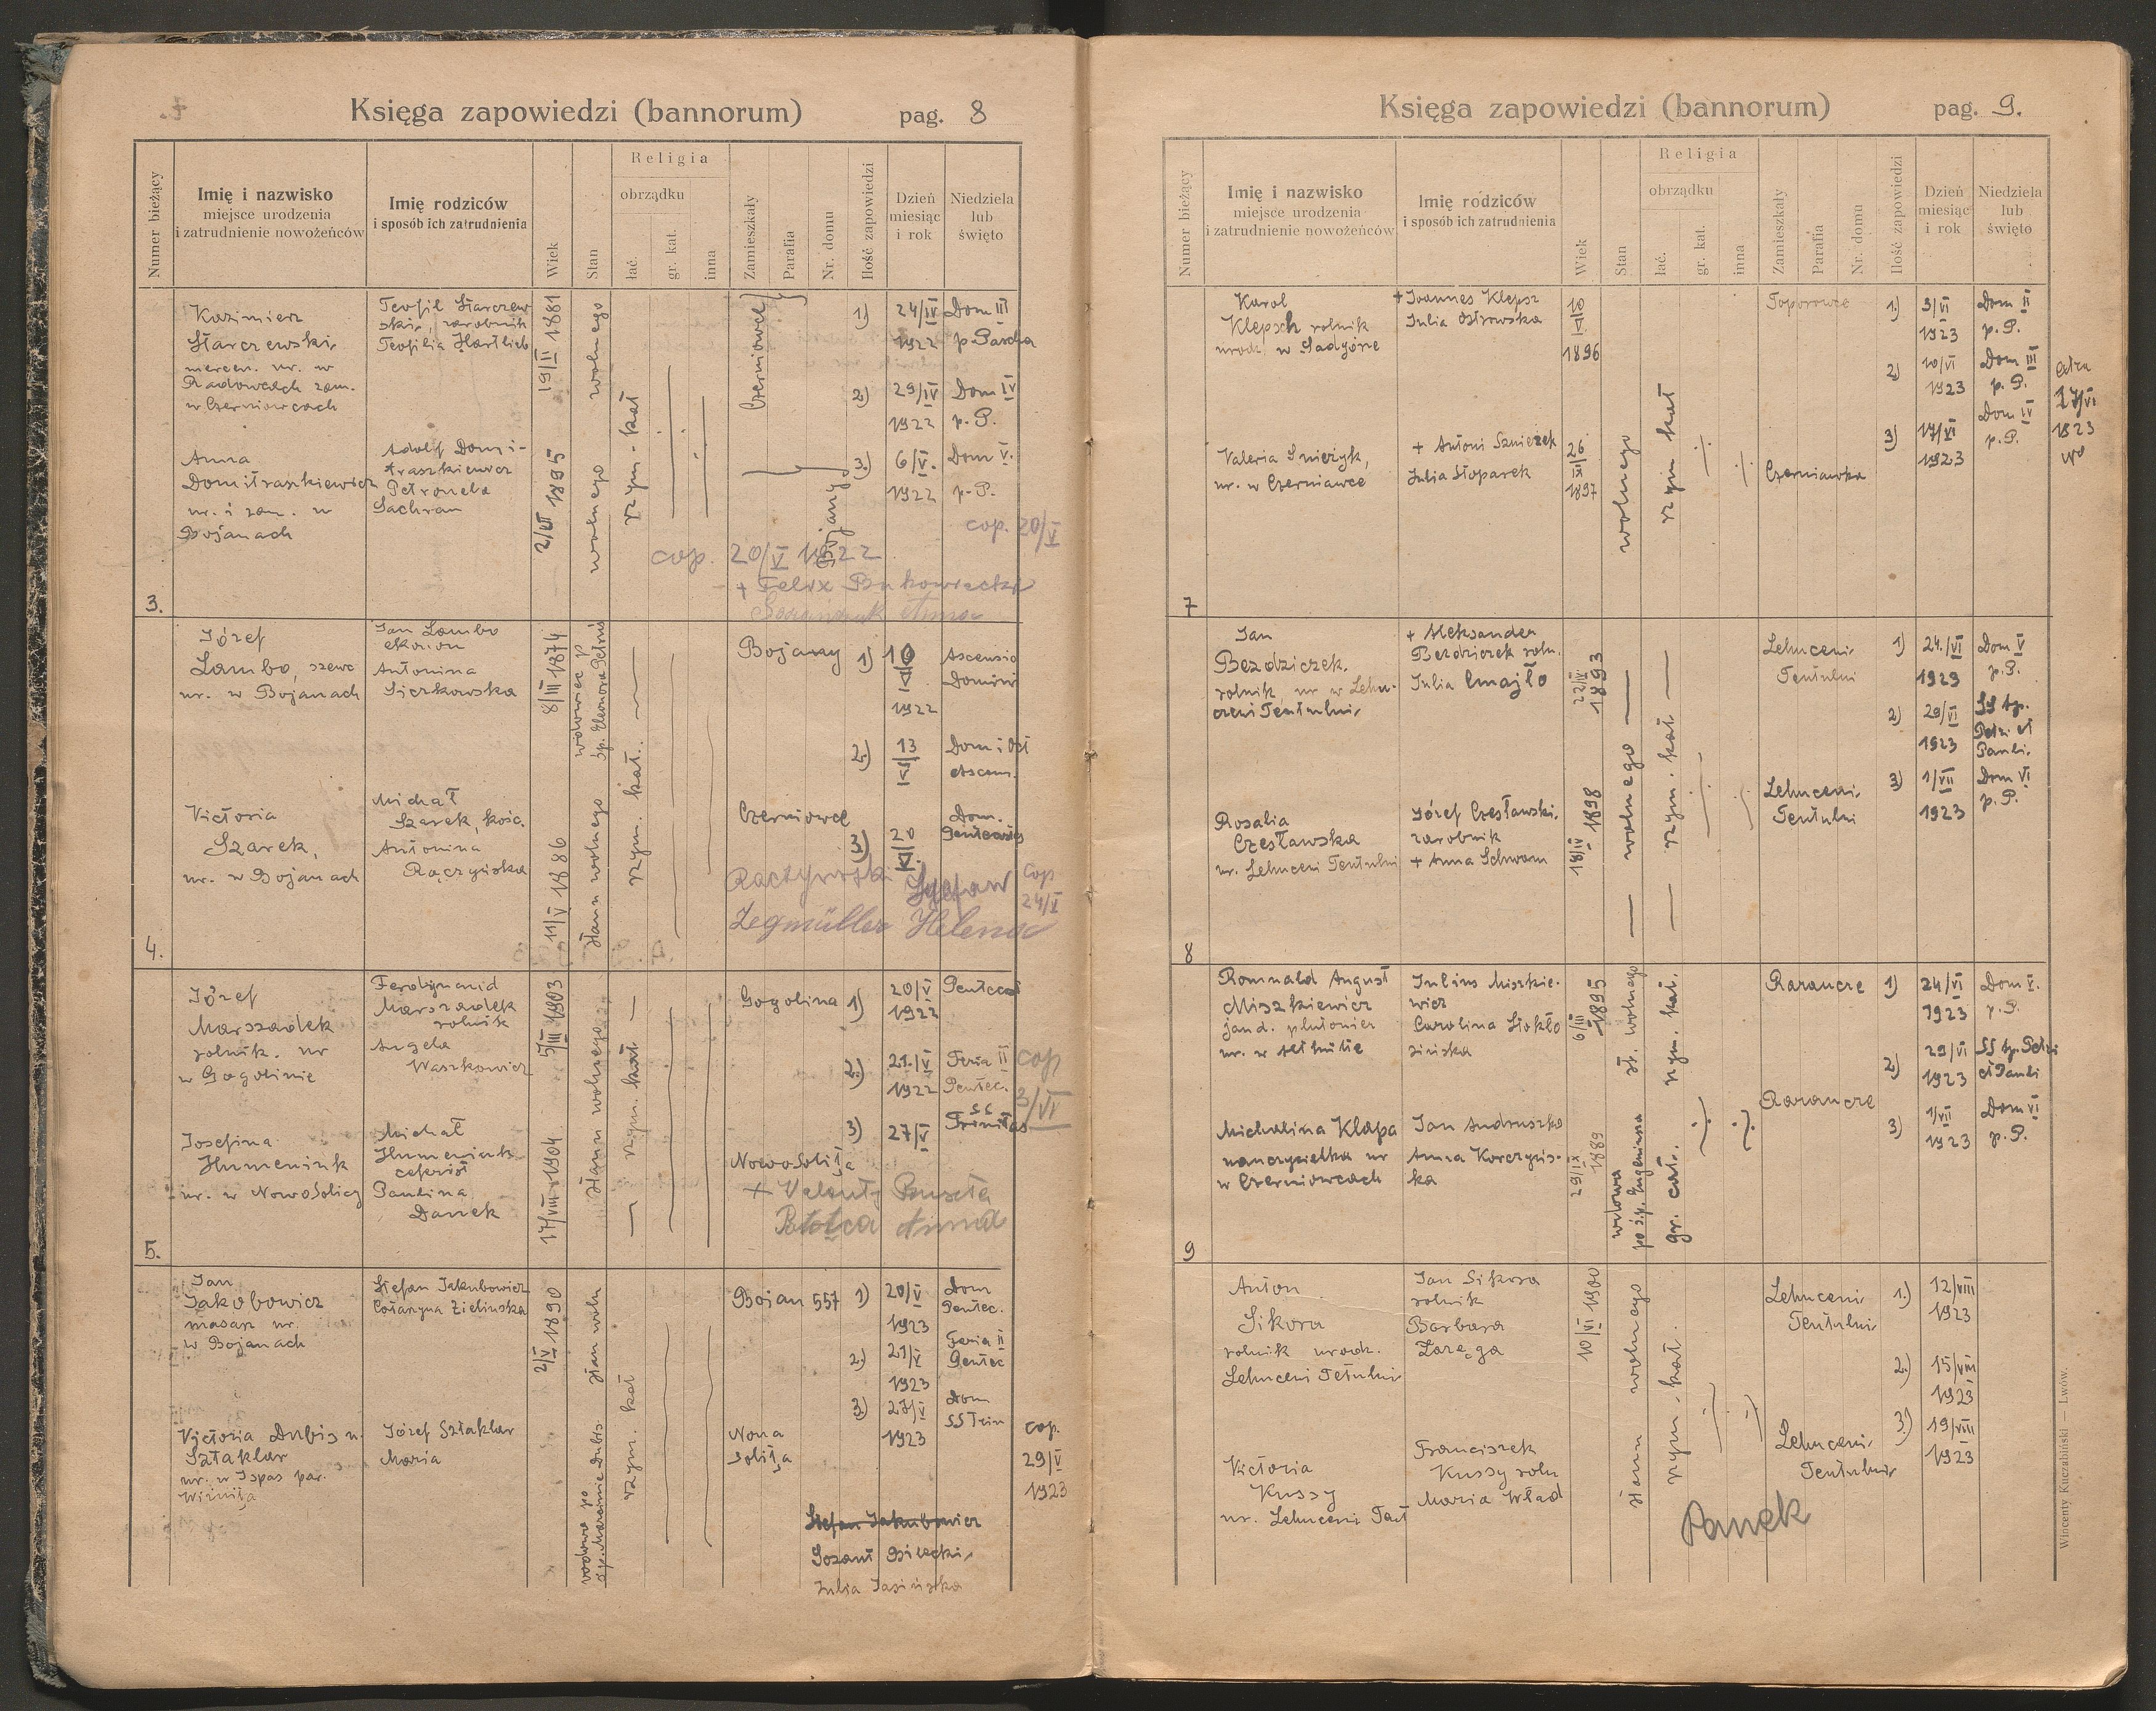 Księga zapowiedzi (bannorum) pag. 8
Numer bieżący
Imię i nazwisko
miejsce urodzenia
i zatrudnienie nowożeńców
Imię rodziców
i sposób ich zatrudnienia
Wiek
Stan
Religia
obrządku
łać.
gr. kat.
inna
Zamieszkały
Parafia
Nr. domu
Ilość zapowiedzi
Dzień
miesiąc
i rok
Niedziela
lub
święto
3.
Kazimierz
Starczewski
nr. w
Radowcach zam.
w Czerniowcach
Teofil Starczew
ski, zarobnik
Teofilia Hartlieb
19/II 1881
wolnego
Anna
Domitraszkiewicz
ur. i zam. w
Bojanach
Adolf Domi-
traszkiewicz
Petronela
Sachran
2/VI 1895
wolnego
rzym. kat
Czerniowce
Bojany
1) 24/IV 1922 Dom III p. Pascha
2) 29/IV 1922 Dom IV p. P.
3.) 6/V. 1922 Dom V. p. P.
cop. 20/V
cop. 20/V 1922
+ Felix Bukowiecki
Anna
4.
Józef
Lambo, szewc
ur. w Bojanach
Jan Lambo
ekonom
Antonina
Siczkowska
8/III 1874
wdowiec p
śp. Eleonora Petrus
Victoria
Szarek,
ur. w Bojanach
Michał
Szarek, kośc.
Antonina
Rączyńska
11/V 1886
stanu wolnego
rzym. kat.
Bojany
Czerniowce
1) 10 VI 1922 Ascensio Domini
2.) 13 VI Dom i Oct Ascen.
3) 20 VI Dom. Pentecostes
Raczyński Stefan
Zegmüller Helena
cop
24/V
5.
Józef
Marszadek
rolnik. ur
w Gogolinie
Ferdynand
Marszadek
rolnik
Angela
Waszkowicz
5/III 1903
Josefina
Humeniuk
ur. w Nowosolicy
Michał
Humeniuk
Paulina
Danek
17/VIII 1904
stanu wolnego
rzym. kat
Gogolina
Nowosoliţa
1) 20/V 1922 Pentecost
2.) 21./V 1922 Feria II Pentec.
3) 27/V SS Trinitas
cop
3/VI
+ Valenty Puszta
Anna
Jan
Jakobowicz
masarz ur.
w Bojanach
Stefan Jakubowicz
Catarzyna Zielinska
2/V 1890
stan woln
Victoria Dubis u.
Sztaklar
ur. w Ispas par.
Wiżniţa
Józef Sztaklar
Maria
wdowa po
śp. Marcinie Dubis
rzym. kat
Bojan 557
Nowa
Soliţa
1) 20/V 1923 Dom Pentec.
2.) 21/V 1923 Feria II Pentec
3) 27/V 1923 Dom SS Trin
cop.
29/V
1923
Stefan Jakubowicz
Bilecki
Julia Jasińska
Księga zapowiedzi (bannorum) pag. 9.
Numer bieżący
Imię i nazwisko
miejsce urodzenia
i zatrudnienie nowożeńców
Imię rodziców
i sposób ich zatrudnienia
Wiek
Stan
Religia
obrządku
łać.
gr. kat.
inna
Zamieszkały
Parafia
Nr. domu
Ilość zapowiedzi
Dzień
miesiąc
i rok
Niedziela
lub
święto
7
Karol
Klepsch rolnik
urodz. w Sadgórze
+ Joannes Klepsz
Julia Ostrowska
10
VI
1896
Valeria Snieżyk,
ur. w Czerniawce
+ Antoni Szniezek
Julia Stoparek
26
IX
1897
wolnego
rzym kat
Toporowce
Czerniawka
1.) 3/VI 1923 Dom II p. P.
2) 10/VI 1923 Dom III p. P.
3) 17/VI 1923 Dom IV p. P.
17/VI
1923
8
Jan
Bezdziczek.
rolnik, ur w Lehu-
czeni Teutului
+ Aleksander
Bezdziczek roln.
Julia Cmajło
22/IV 1893
Rosalia
Czesławska
ur. Lehuceni Teutului
Józef Czesławski.
zarobnik
+ Anna Schwam
18/IV 1898
wolnego
rzym. kat
Lehuceni
Teutului
Lehuceni
Teutului
1) 24./VI 1923 Dom V p. P.
2) 29/VI 1923 SS Ap. Petri et Pauli.
3) 1/VII 1923 Dom VI p. P.
9
Romuald August
Miszkiewicz
jand. plutonier
ur. w
Julius Miszkie-
wicz
Carolina Stokło
sińska
6/III 1895
st. wolnego
rzym. kat.
Michalina Klapa
nauczycielka ur
w Czerniowcach
Jan Andruszko
Anna Korczyńs-
ka
29/IX 1889
wdowa
po ś.p. Eugeniusz
gr. cat.
Rarancze
Rarancze
1) 24/VI 1923 Dom V. p. P.
2) 29/VI 1923 SS Ap. Petri et Pauli
3) 1/VII 1923 Dom VI p. P.
Anton
Sikora
rolnik urodz.
Lehuceni Teutului
Jan Sikora
rolnik
Barbara
Zaręga
10/VI 1900
Victoria
Kussy
ur. Lehuceni Teut
Franciszek
Kussy roln
Maria Wład
stanu wolnego
rzym. kat.
Lehuceni
Teutului
Lehuceni
Teutului
1.) 12/VIII 1923
2.) 15/VIII 1923
3.) 19/VIII 1923
Panek
Wincenty Kuczabiński — Lwów.